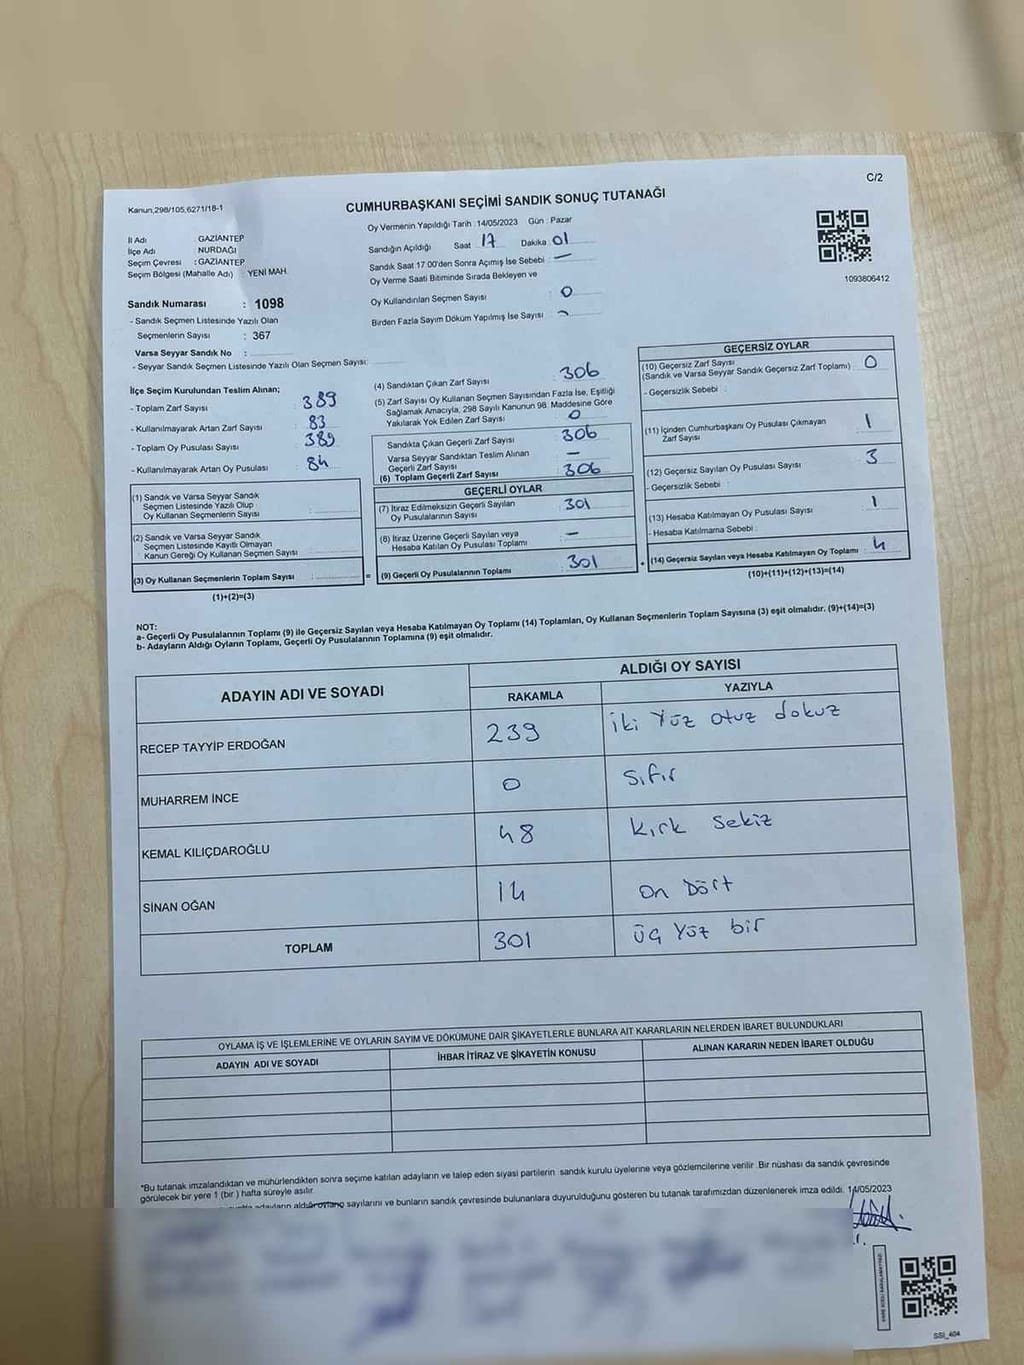 C/2
Kanun,298/105,6271/18-1
CUMHURBAŞKANI SEÇİMİ SANDIK SONUÇ TUTANAĞI
Oy Vermenin Yapıldığı Tarih : 14/05/2023 Gün : Pazar
İl Adı : GAZİANTEP
İlçe Adı : NURDAĞI
Seçim Çevresi : GAZİANTEP
Seçim Bölgesi (Mahalle Adı) : YENİ MAH.
Sandığın Açıldığı Saat 17 Dakika 01
Sandık Saat 17:00'den Sonra Açımış İse Sebebi : —
Oy Verme Saati Bitiminde Sırada Bekleyen ve
Oy Kullandırılan Seçmen Sayısı : 0
Birden Fazla Sayım Döküm Yapılmış İse Sayısı : -
1093806412
Sandık Numarası : 1098
- Sandık Seçmen Listesinde Yazılı Olan
Seçmenlerin Sayısı : 367
Varsa Seyyar Sandık No :
- Seyyar Sandık Seçmen Listesinde Yazılı Olan Seçmen Sayısı:
İlçe Seçim Kurulundan Teslim Alınan;
- Toplam Zarf Sayısı 389
- Kullanılmayarak Artan Zarf Sayısı 83
- Toplam Oy Pusulası Sayısı 389
- Kullanılmayarak Artan Oy Pusulası 84
(1) Sandık ve Varsa Seyyar Sandık
Seçmen Listesinde Yazılı Olup
Oy Kullanan Seçmenlerin Sayısı :
(2) Sandık ve Varsa Seyyar Sandık
Seçmen Listesinde Kayıtlı Olmayan
Kanun Gereği Oy Kullanan Seçmen Sayısı :
(3) Oy Kullanan Seçmenlerin Toplam Sayısı :
(1)+(2)=(3)
(4) Sandıktan Çıkan Zarf Sayısı 306
(5) Zarf Sayısı Oy Kullanan Seçmen Sayısından Fazla İse, Eşitliği
Sağlamak Amacıyla, 298 Sayılı Kanunun 98. Maddesine Göre
Yakılarak Yok Edilen Zarf Sayısı 0
Sandıkta Çıkan Geçerli Zarf Sayısı 306
Varsa Seyyar Sandıktan Teslim Alınan
Geçerli Zarf Sayısı —
(6) Toplam Geçerli Zarf Sayısı 306
GEÇERLİ OYLAR
(7) İtiraz Edilmeksizin Geçerli Sayılan
Oy Pusulalarının Sayısı 301
(8) İtiraz Üzerine Geçerli Sayılan veya
Hesaba Katılan Oy Pusulası Toplamı —
= (9) Geçerli Oy Pusulalarının Toplamı 301
GEÇERSİZ OYLAR
(10) Geçersiz Zarf Sayısı
(Sandık ve Varsa Seyyar Sandık Geçersiz Zarf Toplamı) 0
- Geçersizlik Sebebi :
(11) İçinden Cumhurbaşkanı Oy Pusulası Çıkmayan
Zarf Sayısı 1
(12) Geçersiz Sayılan Oy Pusulası Sayısı 3
- Geçersizlik Sebebi :
(13) Hesaba Katılmayan Oy Pusulası Sayısı 1
- Hesaba Katılmama Sebebi :
+ (14) Geçersiz Sayılan veya Hesaba Katılmayan Oy Toplamı 4
(10)+(11)+(12)+(13)=(14)
NOT:
a- Geçerli Oy Pusulalarının Toplamı (9) ile Geçersiz Sayılan veya Hesaba Katılmayan Oy Toplamı (14) Toplamları, Oy Kullanan Seçmenlerin Toplam Sayısına (3) eşit olmalıdır. (9)+(14)=(3)
b- Adayların Aldığı Oyların Toplamı, Geçerli Oy Pusulalarının Toplamına (9) eşit olmalıdır.
ADAYIN ADI VE SOYADI ALDIĞI OY SAYISI
RAKAMLA YAZIYLA
RECEP TAYYİP ERDOĞAN 239 iki Yüz otuz dokuz
MUHARREM İNCE 0 Sıfır
KEMAL KILIÇDAROĞLU 48 Kırk Sekiz
SİNAN OĞAN 14 On Dört
TOPLAM 301 ÜÇ Yüz bir
OYLAMA İŞ VE İŞLEMLERİNE VE OYLARIN SAYIM VE DÖKÜMÜNE DAİR ŞİKAYETLERLE BUNLARA AİT KARARLARIN NELERDEN İBARET BULUNDUKLARI
ADAYIN ADI VE SOYADI İHBAR İTİRAZ VE ŞİKAYETİN KONUSU ALINAN KARARIN NEDEN İBARET OLDUĞU
*Bu tutanak imzalandıktan ve mühürlendikten sonra seçime katılan adayların ve talep eden siyasi partilerin sandık kurulu üyelerine veya gözlemcilerine verilir. Bir nüshası da sandık çevresinde
görülecek bir yere 1 (bir ) hafta süreyle asılır.
sayılarını ve bunların sandık çevresinde bulunanlara duyurulduğunu gösteren bu tutanak tarafımızdan düzenlenerek imza edildi. 14/05/2023
SSİ_404